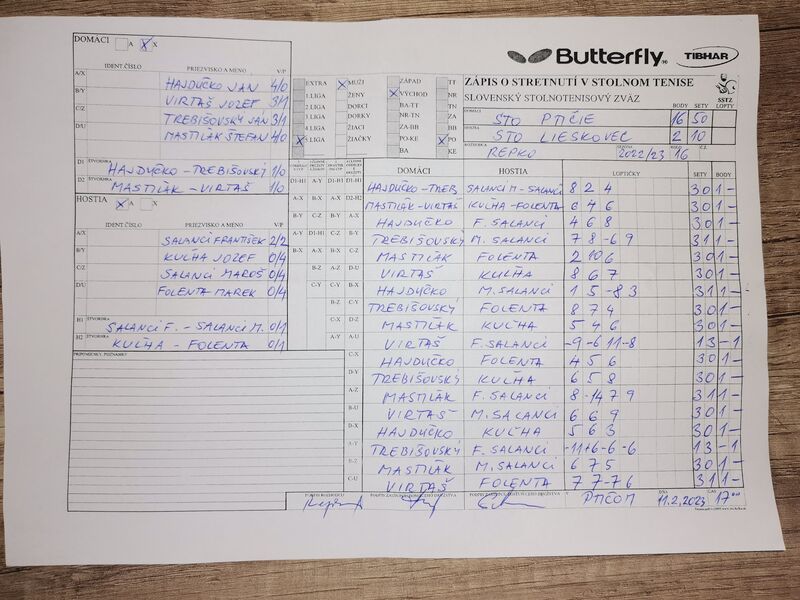 DOMÁCI A X
IDENT.ČÍSLO PRIEZVISKO A MENO V/P
A/X HAJDUČKO JÁN 4/0
B/Y VIRTAŠ JOZEF 3/1
C/Z TREBIŠOVSKÝ JÁN 3/1
D/U MASTILÁK ŠTEFAN 4/0
D1 ŠTVORHRA HAJDUČKO - TREBIŠOVSKÝ 1/0
D2 ŠTVORHRA MASTILÁK - VIRTAŠ 1/0
HOSTIA A X
IDENT. ČÍSLO PRIEZVISKO A MENO V/P
A/X SALANCI FRANTIŠEK 2/2
B/Y KUĽHA JOZEF 0/4
C/Z SALANCI MAROŠ 0/4
D/U FOLENTA MAREK 0/4
H1 ŠTVORHRA SALANCI F. - SALANCI M. 0/1
H2 ŠTVORHRA KUĽHA - FOLENTA 0/1
PRIPOMIENKY, POZNÁMKY
Butterfly TIBHAR
EXTRA MUŽI ZÁPAD TT
1.LIGA ŽENY VÝCHOD NR
2.LIGA DORCI BA-TT TN
3.LIGA DORKY NR-TN ZA
4.LIGA ŽIACI ZA-BB BB
5.LIGA ŽIAČKY PO-KE PO
BA KE
ZÁPIS O STRETNUTÍ V STOLNOM TENISE
SLOVENSKÝ STOLNOTENISOVÝ ZVÄZ
SSTZ
BODY SETY LOPTY
DOMÁCI STO PTIČIE 16 50
HOSTIA STO LIESKOVEC 2 10
REPKO SEZÓNA 2022/23 KOLO 16 Č.Z.
DOMÁCI HOSTIA LOPTIČKY SETY BODY
HAJDUČKO-TREB. SALANCI M-SALANCI 8 2 4 3 0 1 -
MASTILÁK-VIRTAŠ KUĽHA-FOLENTA 6 4 6 3 0 1 -
HAJDUČKO F. SALANCI 4 6 8 3 0 1 -
TREBIŠOVSKÝ M. SALANCI 7 8 -6 9 3 1 1 -
MASTILÁK FOLENTA 2 10 6 3 0 1 -
VIRTAŠ KUĽHA 8 6 7 3 0 1 -
HAJDUČKO M. SALANCI 1 5 -8 3 3 1 1 -
TREBIŠOVSKÝ FOLENTA 8 7 4 3 0 1 -
MASTILÁK KUĽHA 5 4 6 3 0 1 -
VIRTAŠ F. SALANCI -9 -6 11 -8 1 3 - 1
HAJDUČKO FOLENTA 4 5 6 3 0 1 -
TREBIŠOVSKÝ KUĽHA 6 5 8 3 0 1 -
MASTILÁK F. SALANCI 8 -14 7 9 3 1 1 -
VIRTAŠ M. SALANCI 6 6 9 3 0 1 -
HAJDUČKO KUĽHA 5 6 3 3 0 1 -
TREBIŠOVSKÝ F. SALANCI -11 +6 -6 -6 1 3 - 1
MASTILÁK M. SALANCI 6 7 5 3 0 1 -
VIRTAŠ FOLENTA 7 7 -7 6 3 1 1 -
PODPIS ROZHODCU V PTIČOM DŇA 11.2.2023 ČAS 17:00